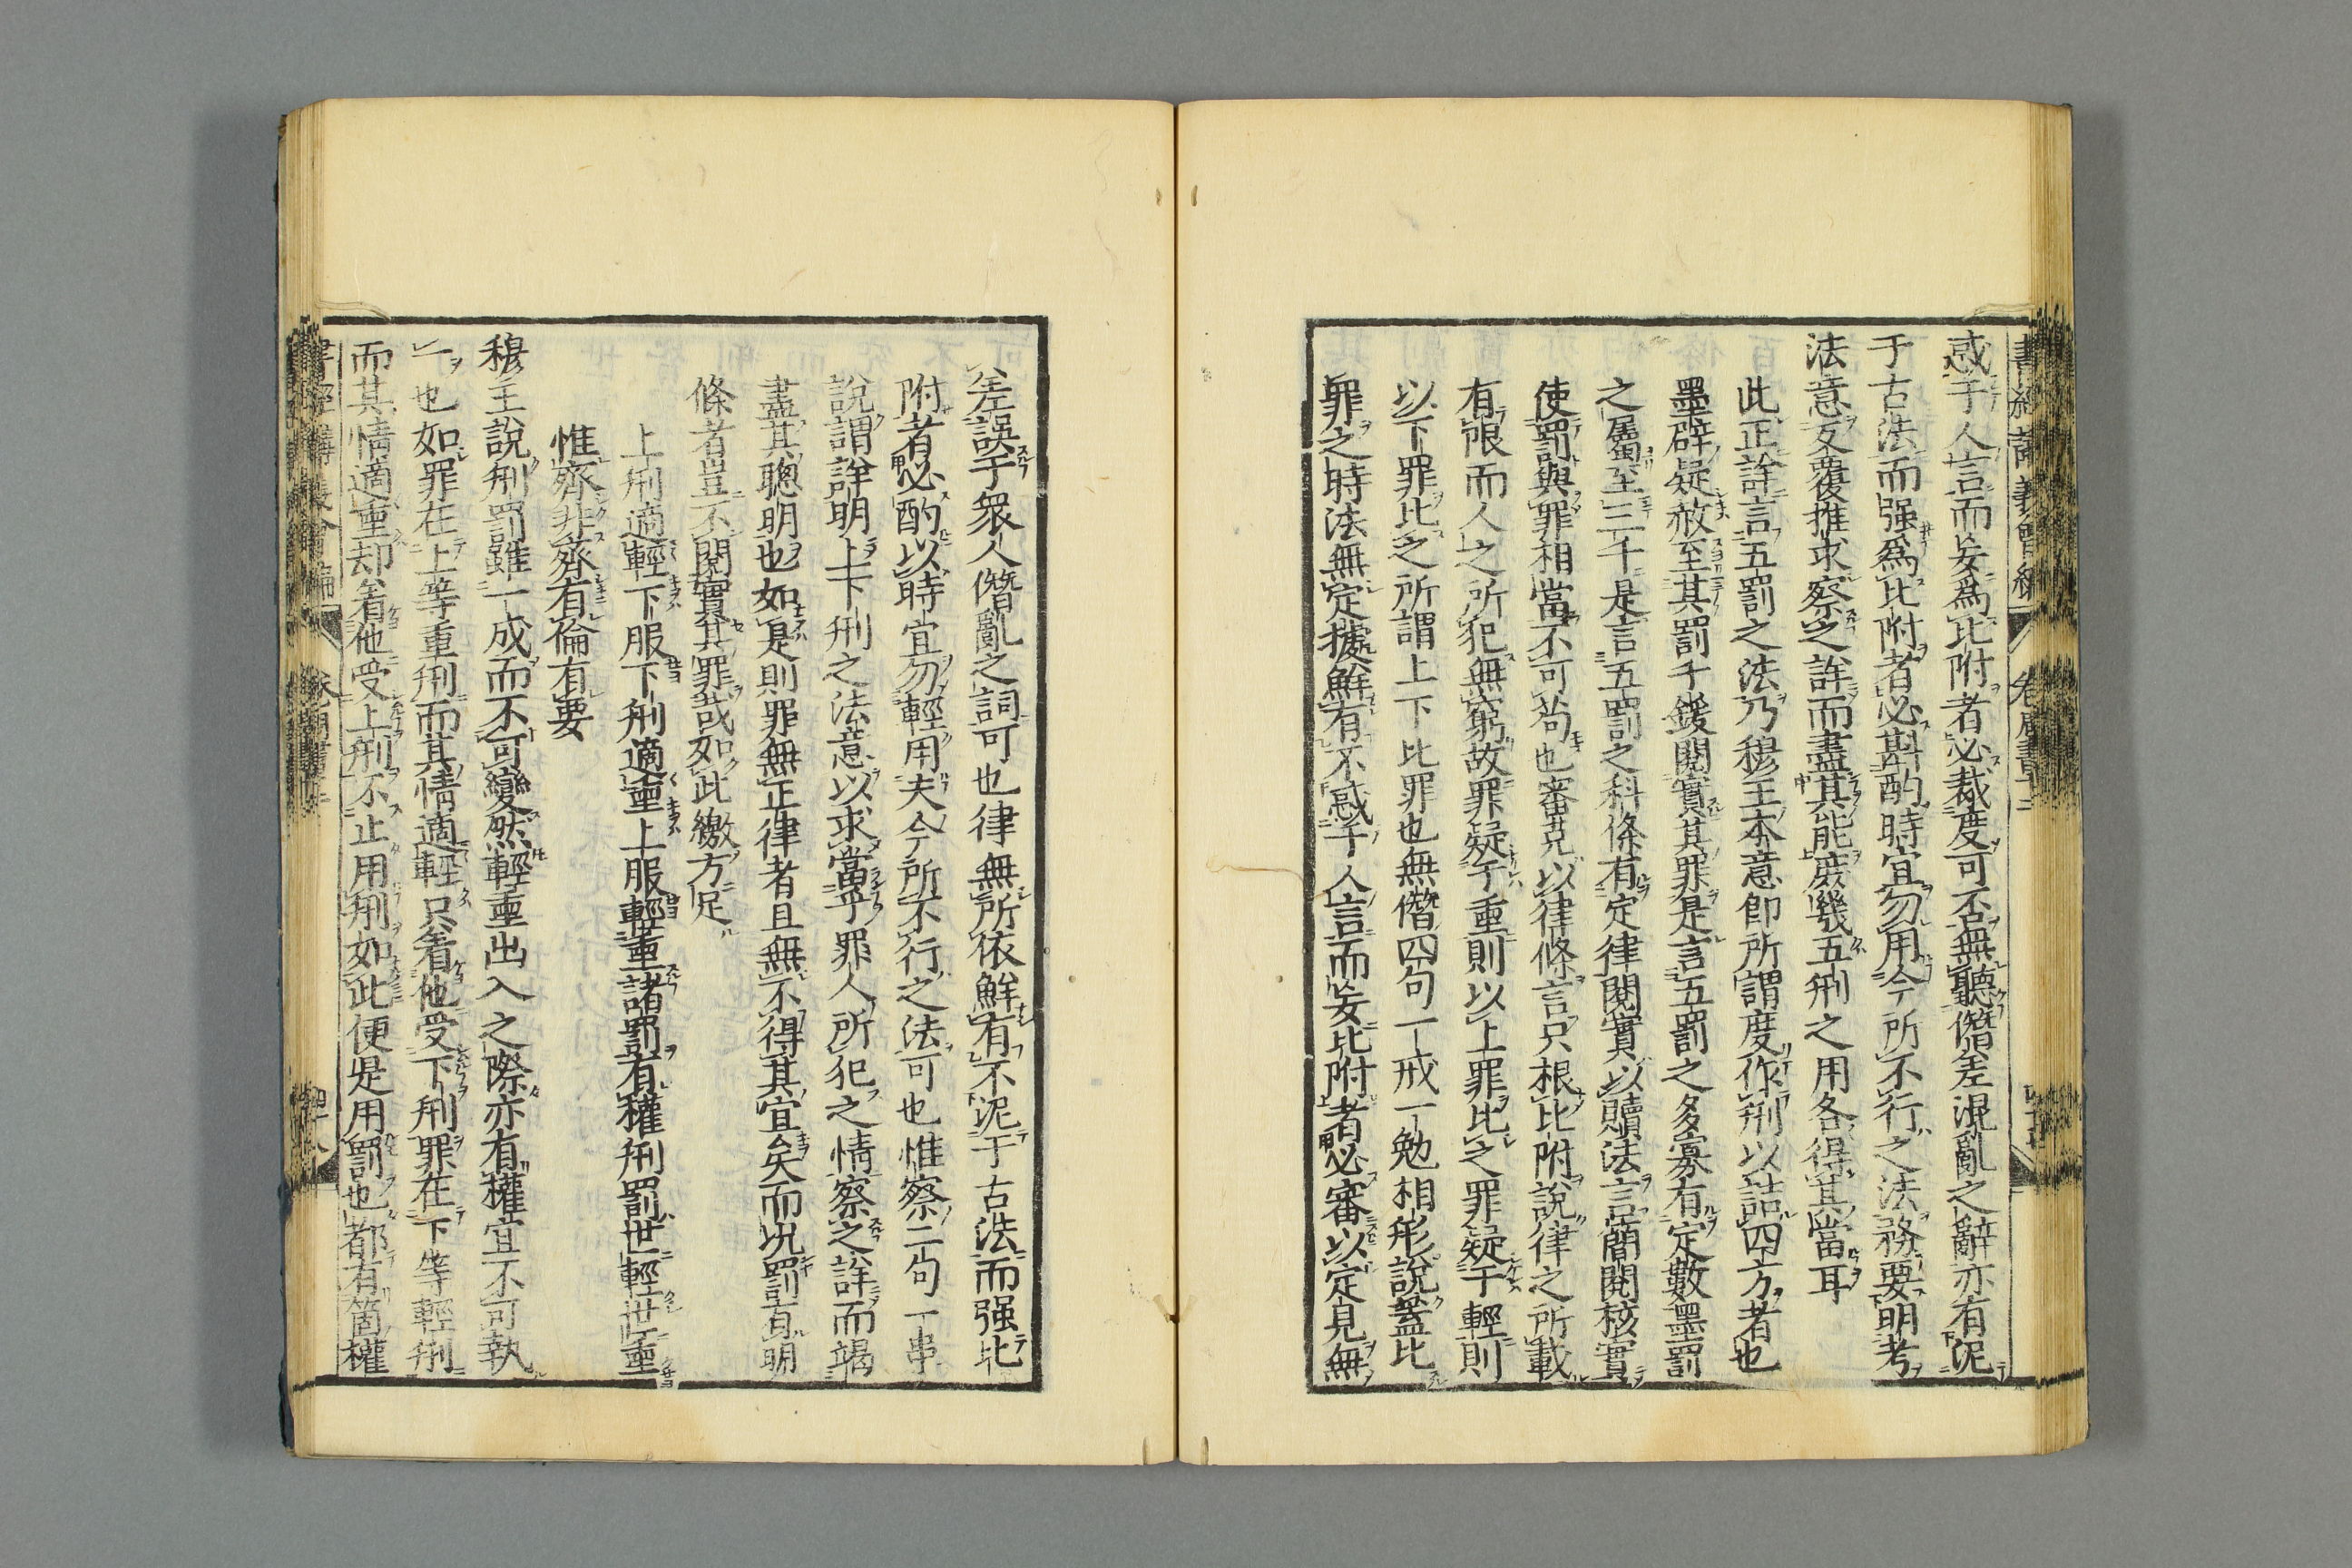 書經講義會編 卷 周書十二
惑于人言而妄爲比附者必裁度可否無聽僭差混亂之辭亦有泥
于古法而强爲比附者必斟酌時宜勿用今所不行之法務要明考
法意反覆推求察之詳而盡其能庶幾五刑之用各得其當耳
此正詳言五罰之法乃穆王本意卽所謂度作刑以詰四方者也
墨辟疑赦至其罰千鍰閱實其罪是言五罰之多寡有定數墨罰
之屬至三千是言五罰之科條有定律閱實以贖法言簡閱核實
使罰與罪相當不可茍也審克以律條言只根比附說律之所載
有限而人之所犯無窮故罪疑于重則以上罪比之罪疑于輕則
以下罪比之所謂上下比罪也無僭四句一戒一勉相形說蓋比
罪之時法無定據鮮有不惑于人言而妄比附者必審以定見無
差誤于衆人僭亂之詞可也律無所依鮮有不泥于古法而强比
附者必酌以時宜勿輕用夫今所不行之法可也惟察二句一串
說謂詳明上下刑之法意以求當乎罪人所犯之情察之詳而竭
盡其聰明也如是則罪無正律者且無不得其宜矣而况罰有明
條者豈不閱實其罪哉如此繳方足
上刑適輕下服下刑適重上服輕重諸罰有權刑罰世輕世重
惟齊非齊有倫有要
穆王說刑罰雖一成而不可變然輕重出入之際亦有權宜不可執
一也如罪在上等重刑而其情適輕只着他受下刑罪在下等輕刑
而其情適重却着他受上刑不止用刑如此便是用罰也都有箇權
書經講義會編